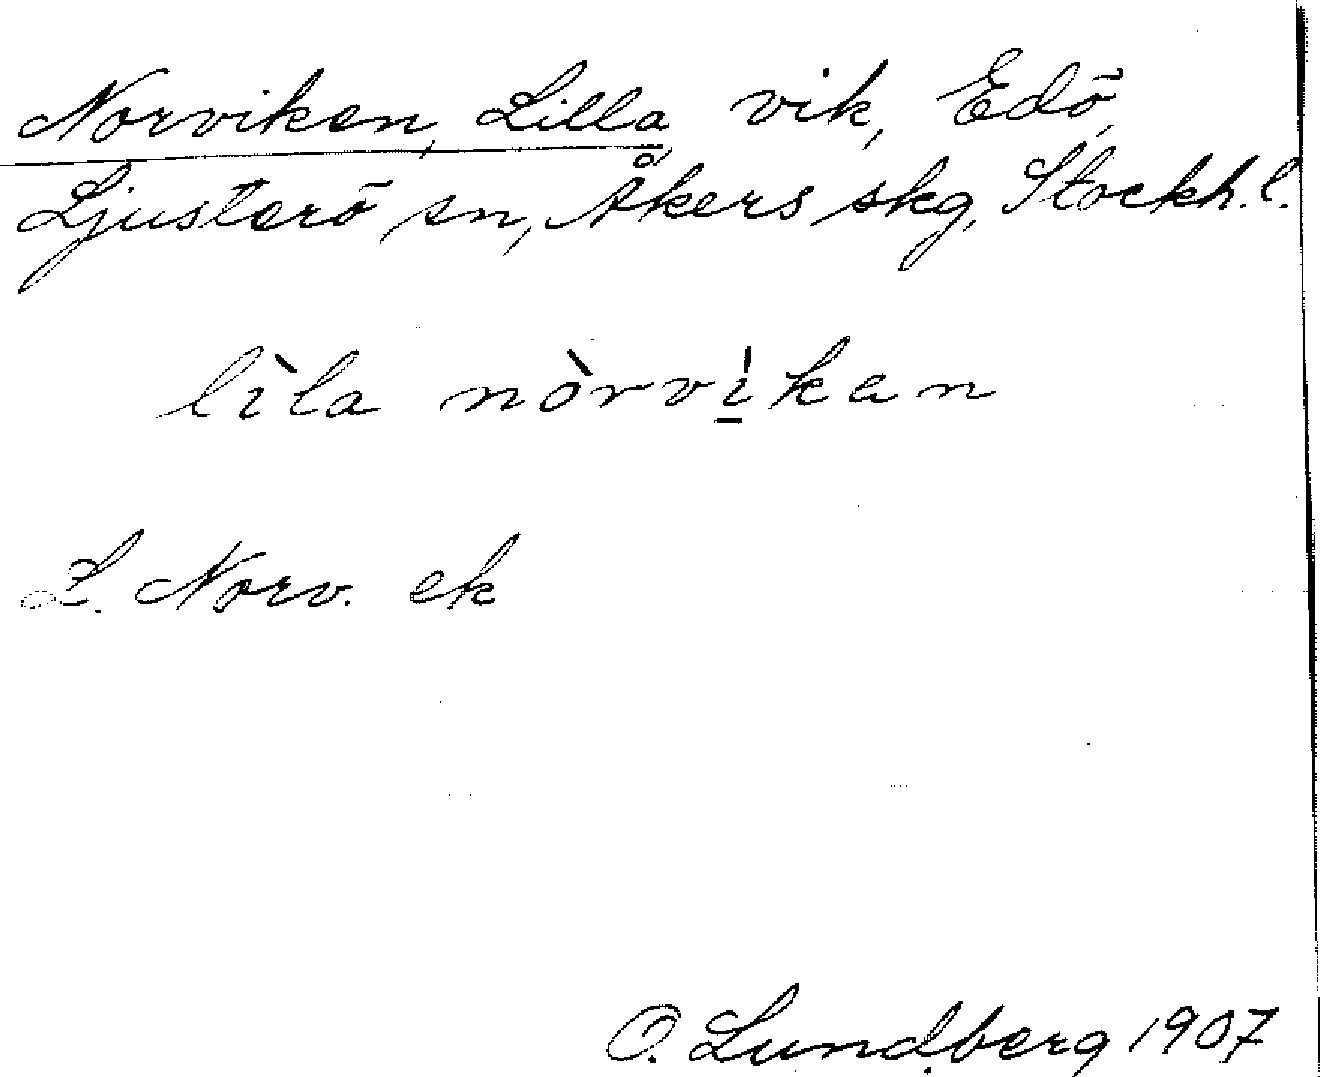 Norviken, Lilla, vik, Edö,
Ljusterö sn, Åkers skg, Stockh. l.
lìla nòrvi̠̍kan
L. Norv. ek
O. Lundberg 1907